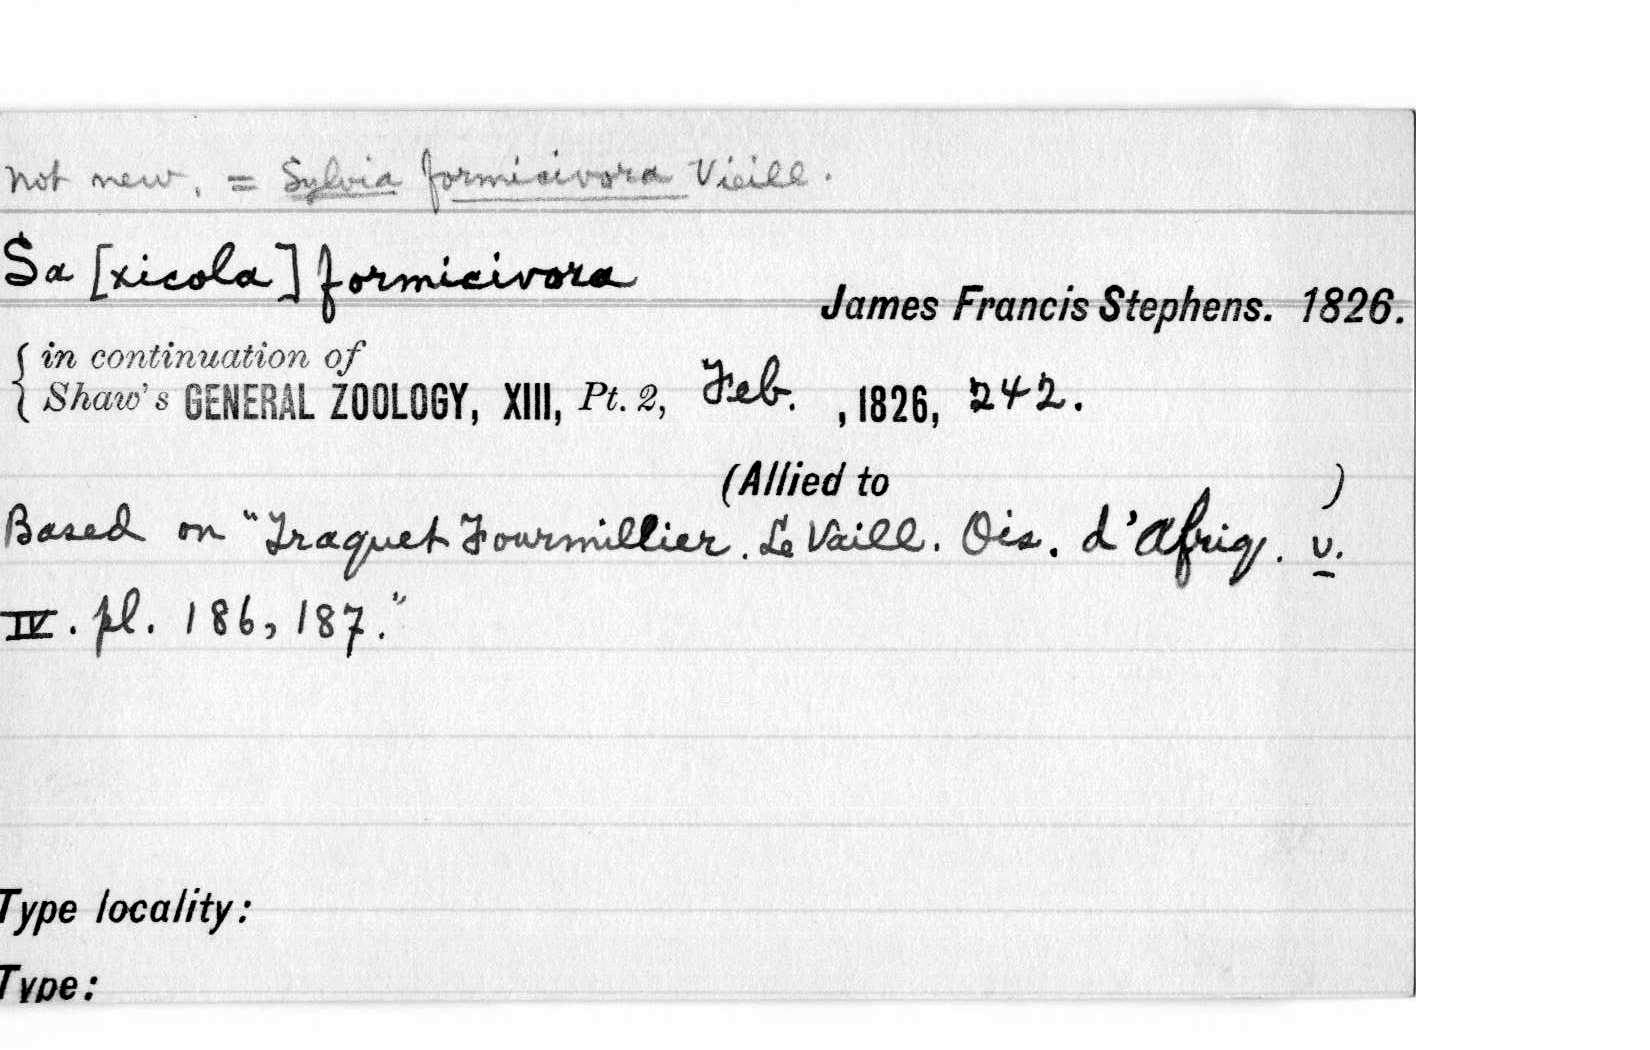 Not new. = Sylvia formicivora Vieill.
Sa [xicola] formicivora
James Francis Stephens. 1826.
{ in continuation of
Shaw's GENERAL ZOOLOGY, XIII, Pt. 2, Feb. , 1826, 242.
(Allied to )
Based on "Traquet Fourmillier. Le Vaill. Ois. d'Afriq. v.
IV. pl. 186, 187."
Type locality:
Type: